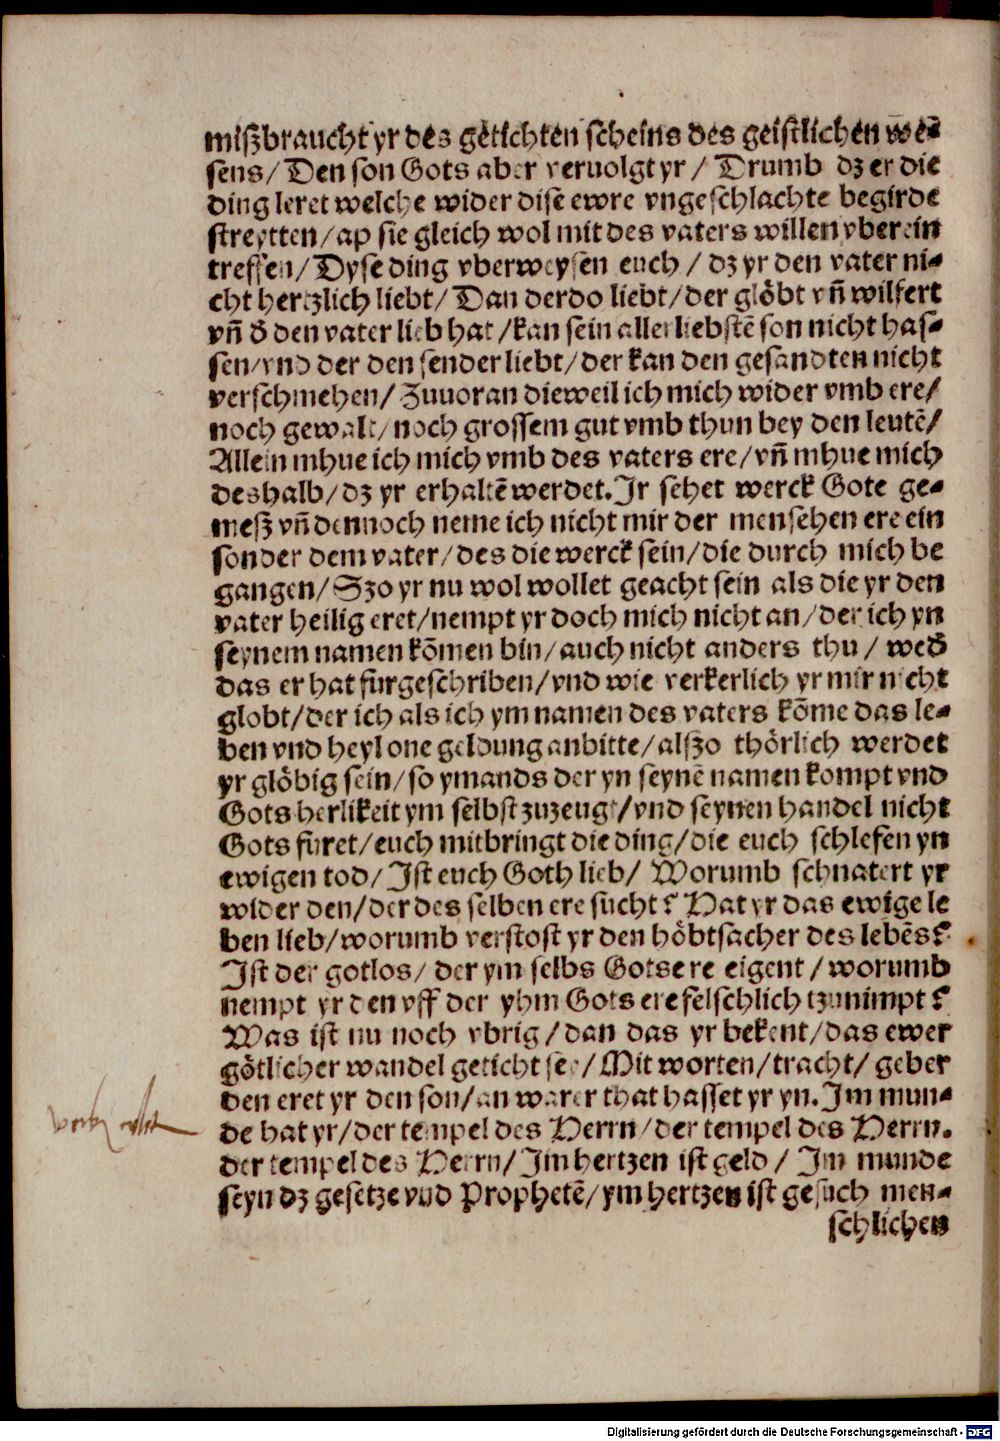 miszbraucht yr des getichten scheins des geistlichen we⸗
sens/ Den son Gots aber veruolgt yr / Drumb dz er die
ding leret welche wider dise ewre vngeschlachte begirde
streytten/ ap sie gleich wol mit des vaters willen vberein
treffen/ Dyse ding vberweysen euch / dz yr den vater ni⸗
cht hertzlich liebt/ Dan derdo liebt/ der glöbt vñ wilfert
vñ d̄ den vater lieb hat /kan sein allerliebstē son nicht has⸗
sen/ vnd der den sender liebt/ der kan den gesandten nicht
verschmehen/ Zuuoran dieweil ich mich wider vmb ere/
noch gewalt/ noch grossem gut vmb thun bey den leutē/
Allein mhue ich mich vmb des vaters ere/ vñ mhue mich
deshalb/ dz yr erhaltē werdet. Ir sehet werck Gote ge⸗
mesz vñ dennoch neme ich nicht mir der mensehen ere ein
sonder dem vater/ des die werck sein/ die durch mich be
gangen/ Szo yr nu wol wollet geacht sein als die yr den
vater heilig eret/ nempt yr doch mich nicht an/ der ich yn
seynem namen kōmen bin/ auch nicht anders thu / wed̄
das er hat furgeschriben/ vnd wie verkerlich yr mir nicht
globt/ der ich als ich ym namen des vaters kōme das le⸗
ben vnd heyl one geldung anbitte/ alszo thörlich werdet
yr glöbig sein/ so ymands der yn seynē namen kompt vnd
Gots herlikeit ym selbst zuzeugt/ vnd seynen handel nicht
Gots furet/ euch mitbringt die ding/ die euch schlefen yn
ewigen tod/ Ist euch Goth lieb/ Worumb schnatert yr
wider den/ der des selben ere sucht? Hat yr das ewige le
ben lieb/ worumb verstost yr den höbtsacher des lebēs?
Ist der gotlos/ der ym selbs Gots ere eigent / worumb
nempt yr den vff der yhm Gots ere felschlich tzunimpt?
Was ist nu noch vbrig / dan das yr bekent/ das ewer
götlicher wandel geticht sey/ Mit worten/ tracht/ geber
den eret yr den son/ an warer that hasset yr yn. Im mun⸗
de hat yr/ der tempel des Herrn/ der tempel des Herrn.
der tempel des Herrn/ Im hertzen ist geld / Im munde
seyn dz gesetze vnd Prophetē/ ym hertzen ist gesuch men⸗
schlichen
Digitalisierung gefördert durch die Deutsche Forschungsgemeinschaft - DFG